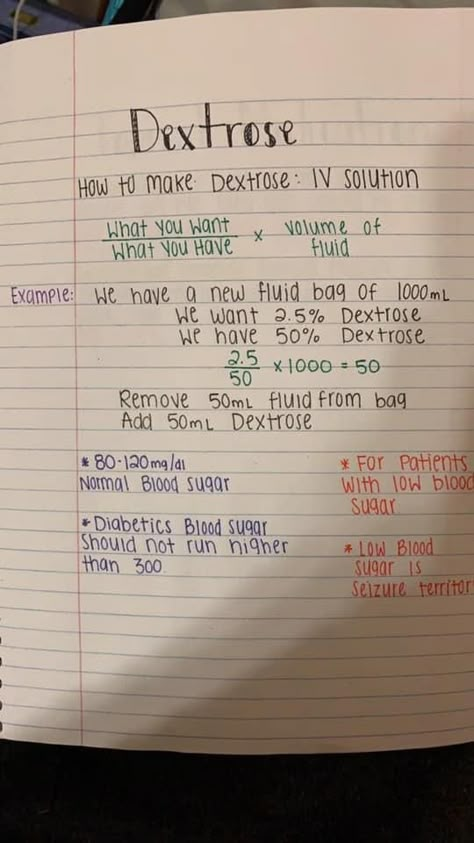 Dextrose
How to make: Dextrose: IV solution
What you Want
What you Have
x
volume of
fluid
Example: We have a new fluid bag of 1000mL
We want 2.5% Dextrose
We have 50% Dextrose
2.5
50
x 1000 = 50
Remove 50mL fluid from bag
Add 50mL Dextrose
* 80-120mg/dl
Normal Blood sugar
* Diabetics Blood sugar
Should not run higher
than 300.
* For Patients
With low blood
Sugar
* Low Blood
Sugar is
Seizure territor